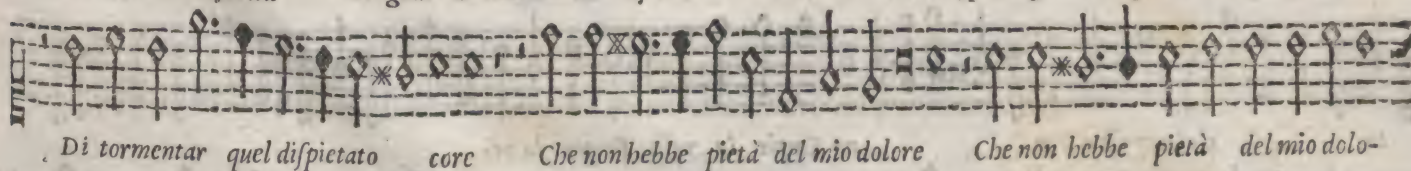 Di tormentar quel dispietato core Che non hebbe pietà del mio dolore Che non hebbe pietà del mio dolo-